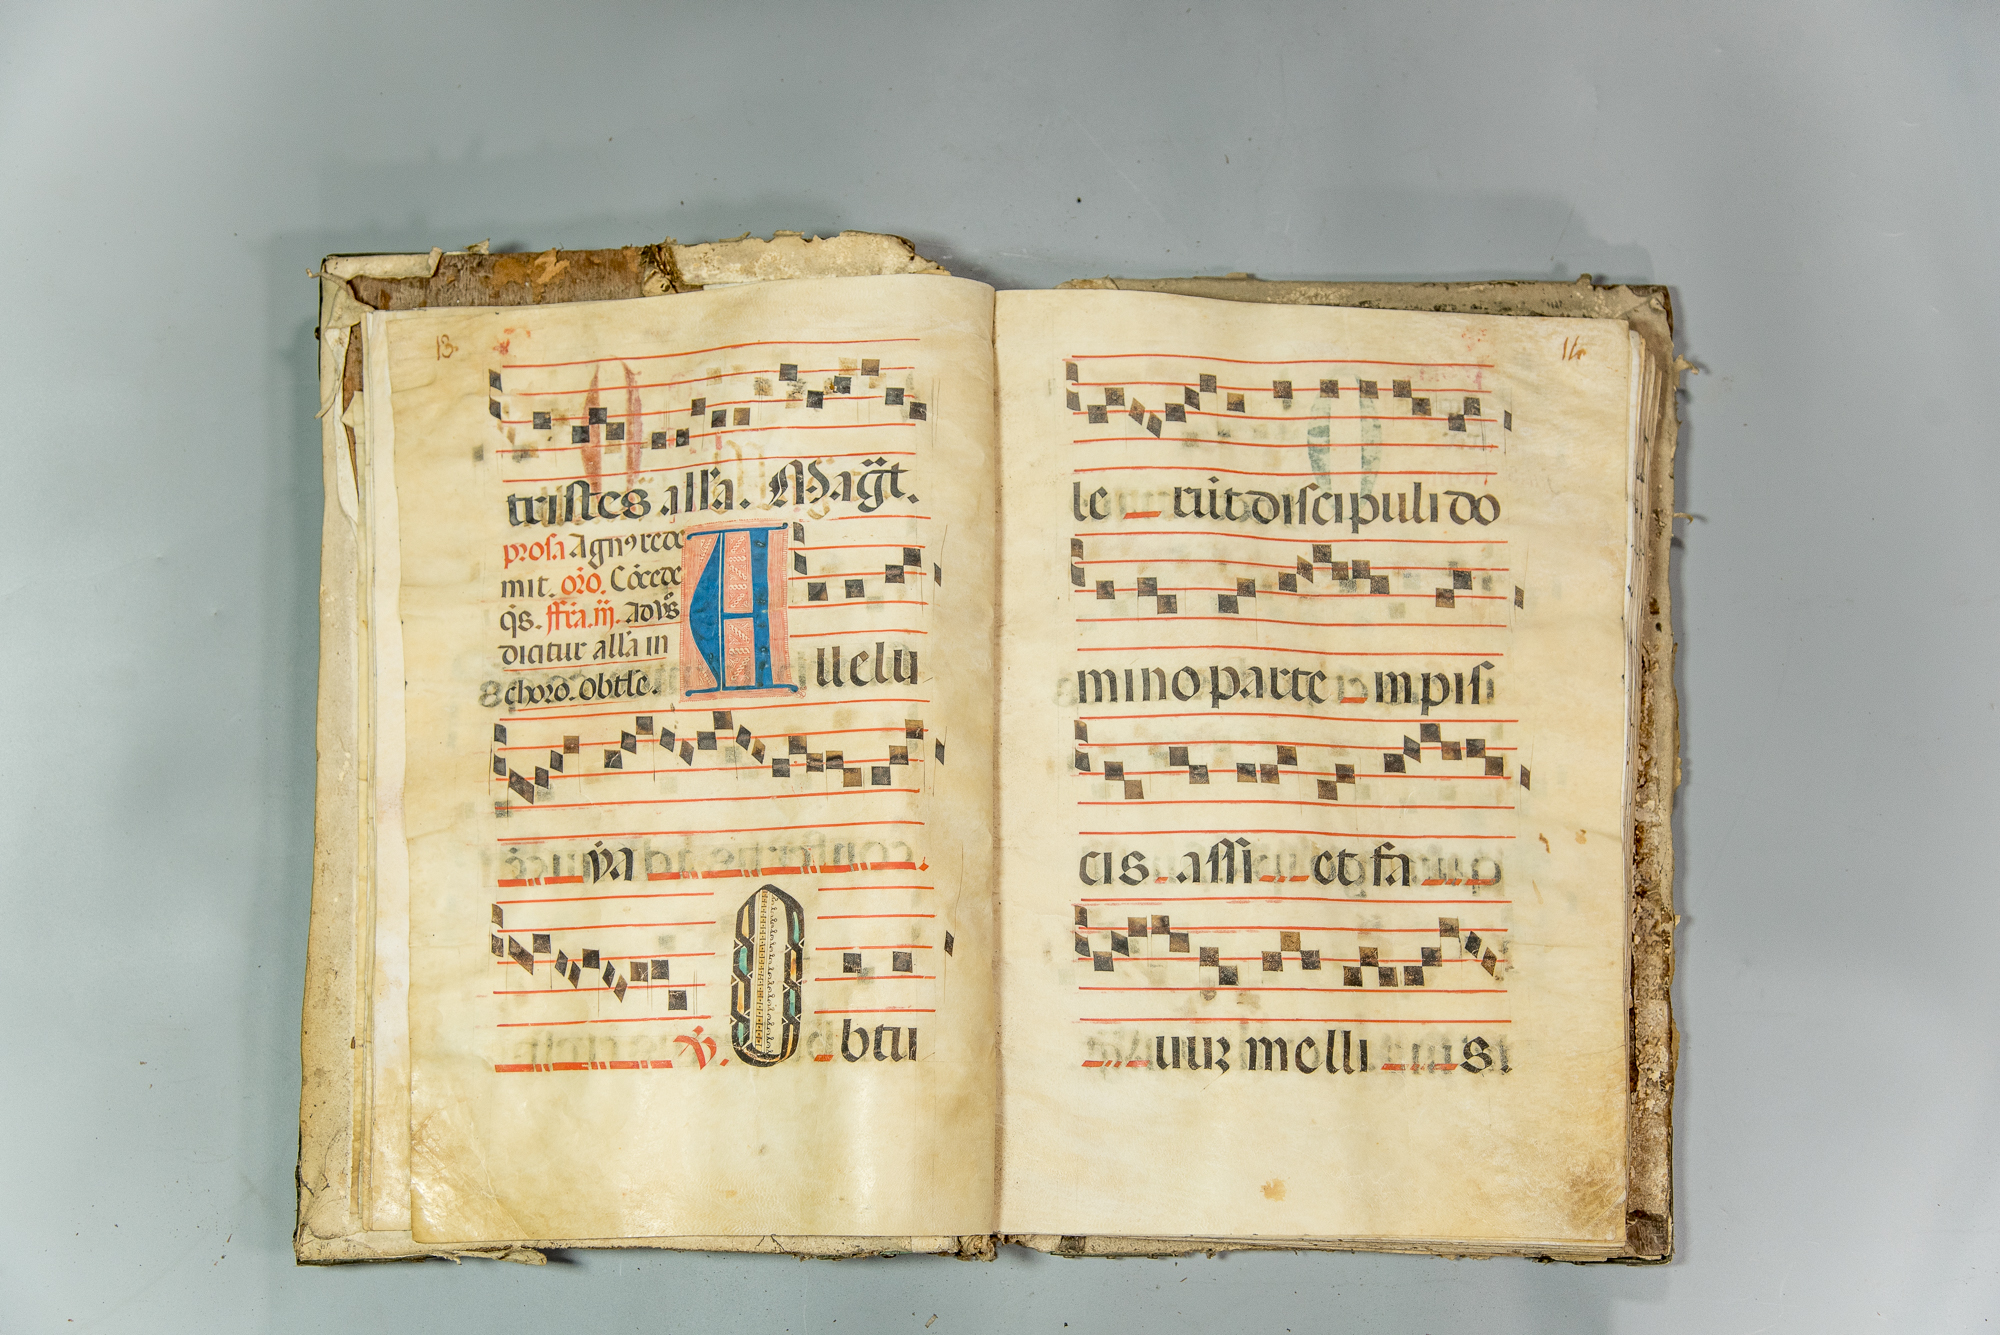 13.
tristes. all'a. Mag̃t.
prosa Agn⁹ rede
mit. or̃o. Cõcede
q̃s. ffr̃a. iij. Ad vs̃
dicitur all'a in
choro. Obtl'e.
A llelu
ẏa
℣. O btu
14
le rũt discipuli do
mino parte m pisi
cis. assi et fa
uuʒ melli si